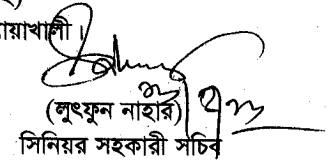 (লুৎফুন নাহার)
সিনিয়র সহকারী সচিব